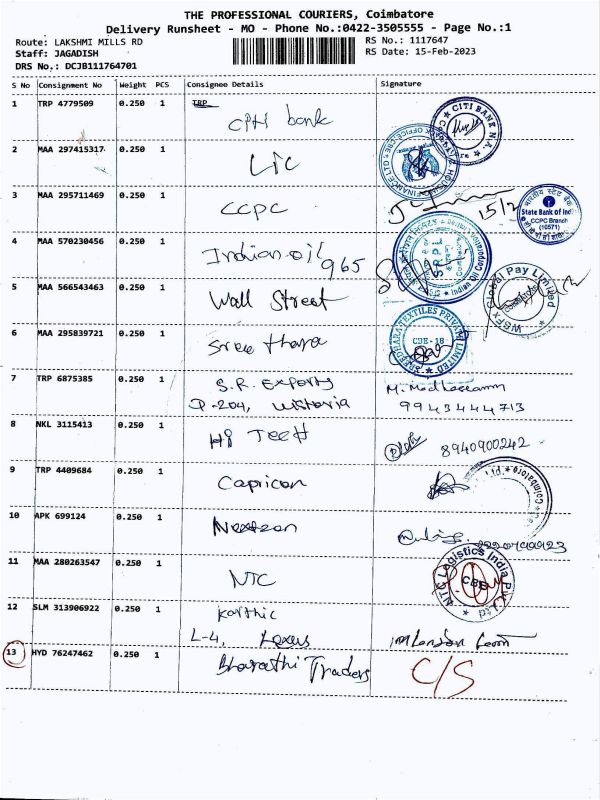 THE PROFESSIONAL COURIERS, Coimbatore
Delivery Runsheet - MO - Phone No.:0422-3505555 - Page No.:1
Route: LAKSHMI MILLS RD
Staff: JAGADISH
DRS No.: DCJB111764701
RS No.: 1117647
RS Date: 15-Feb-2023
S No Consignment No Weight PCS Consignee Details Signature
1 TRP 4779509 0.250 1 TRP
Citi bank
CITI BANK N.A.
2 MAA 297415317 0.250 1
LIC
3 MAA 295711469 0.250 1
CCPC
15/2
State Bank of Indi
CCPC Branch
(10571)
4 MAA 570230456 0.250 1
Indian oil 965
Indian Oil Corporation
5 MAA 566543463 0.250 1
Wall Street
WSFx Global Pay Limited
Coimbatore
6 MAA 295839721 0.250 1
Sree thara
SREEDHARA TEXTILES PRIVATE LIMITED
CBE-18
7 TRP 6875385 0.250 1 S.R. Exports
P-204, Wistoria
9943444713
8 NKL 3115413 0.250 1
Hi Tech
8940900242
9 TRP 4409684 0.250 1
Capricon
Ltd. * Coimbatore *
10 APK 699124 0.250 1
Nextzon
11 MAA 280263547 0.250 1
NTC
NTC Logistics India Pvt Ltd
CBE
12 SLM 313906922 0.250 1 Karthic
L-4, Lexus
13 HYD 76247462 0.250 1
Bharathi Traders
C/S